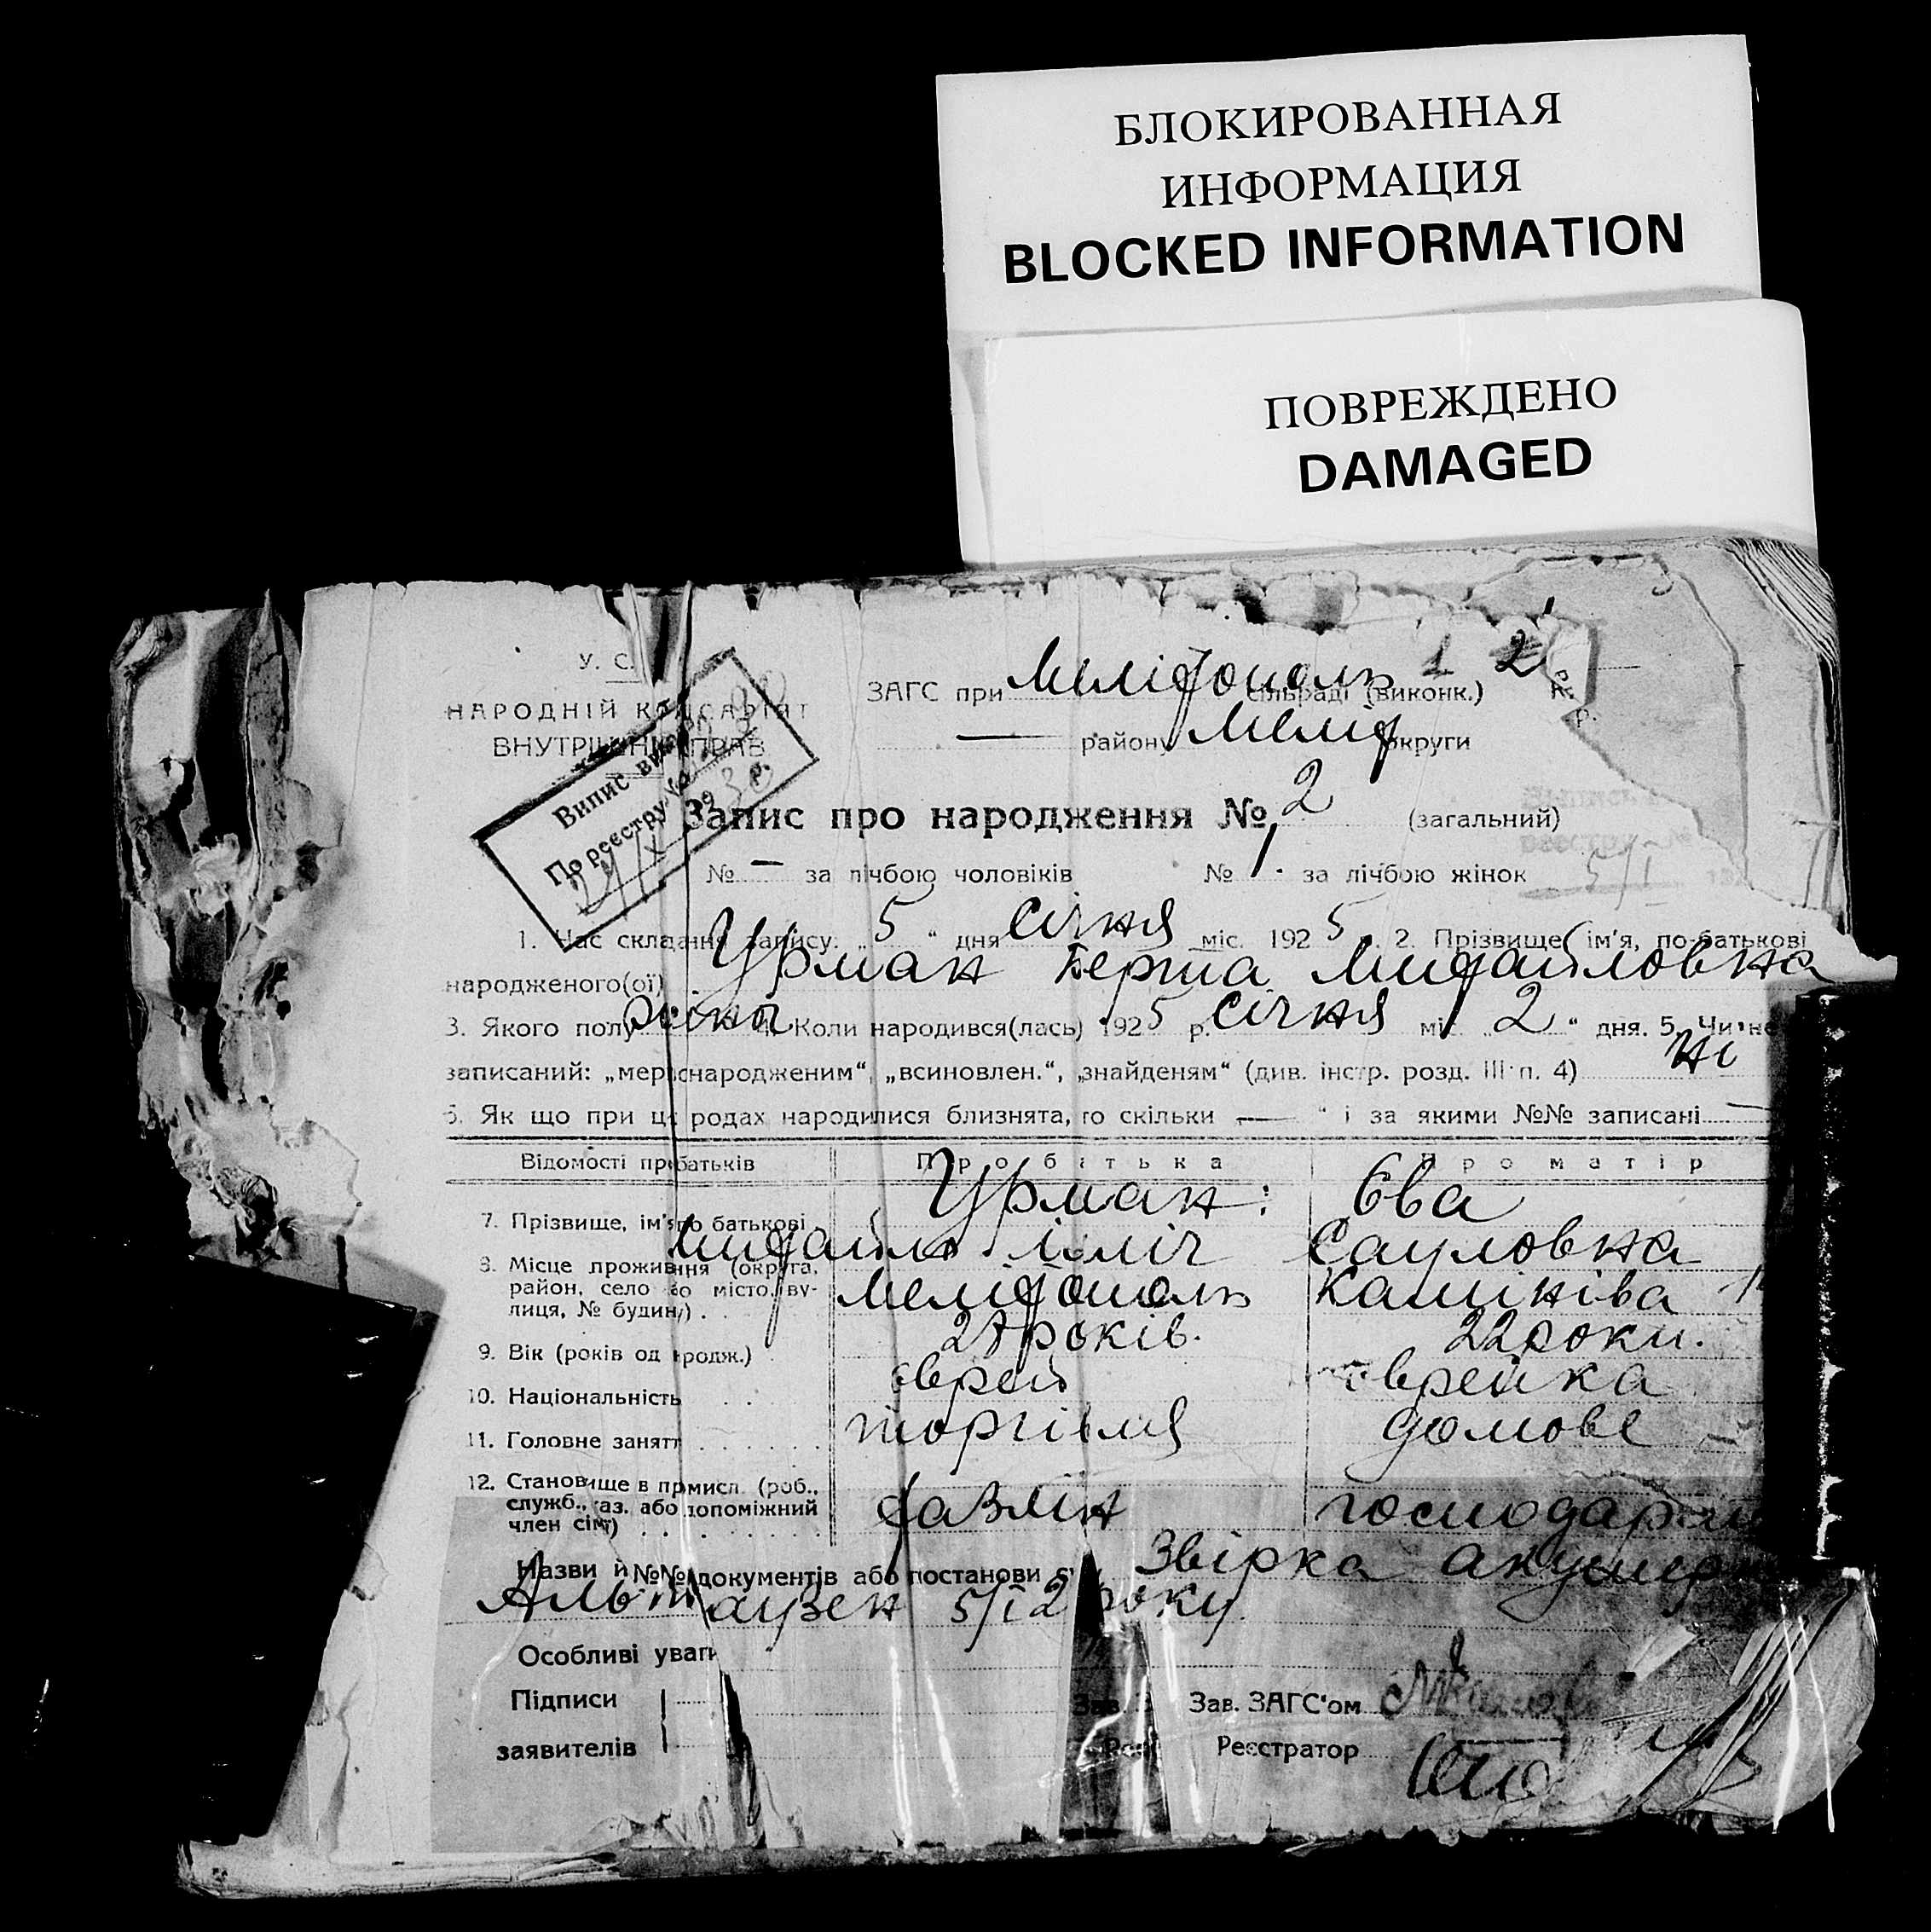 БЛОКИРОВАННАЯ
ИНФОРМАЦИЯ
BLOCKED INFORMATION
ПОВРЕЖДЕНО
DAMAGED
У. С.
НАРОДНІЙ КОМІСАРІЯТ
ВНУТРІШНІХ СПРАВ
Випис
По реєстру №
ЗАГС при Мелітополь сільраді (виконк.)
— району Меліт округи
Запис про народження № 2 (загальний)
№ — за лічбою чоловіків № 1 за лічбою жінок
5/I
1. Час складання запису: „5“ дня січня міс. 1925 2. Прізвище, ім'я, по-батькові
народженого(ої) Урман Берта Михайловна
3. Якого полу жіноч. 4. Коли народився(лась) 1925 р. січня міс. 2 “ дня. 5. Чи не
записаний: „мертвонародженим“, „всиновлен.“, „знайденям“ (див. інстр. розд. III п. 4) ні
6. Як що при цих родах народилися близнята, то скільки — “ і за якими №№ записані —
Відомості про батьків Про батька Про матір
7. Прізвище, ім'я по батькові Урман: Михайло Ілліч Єва Сауловна
8. Місце проживання (округа,
район, село або місто, ву-
лиця, № будинку) Мелітополь
9. Вік (років од народж.) 27 років. 22 роки.
10. Національність єврей єврейка
11. Головне заняття торгівля домове
12. Становище в промисл. (роб.,
служб., хаз. або допоміжний
член сім'ї) хазяїн господар
Назви й №№ документів або постанови Звірка акушер
Альтгаузен 5/I 2 року
Особливі уваги
Підписи Зав. ЗАГС'ом
заявителів Реєстратор